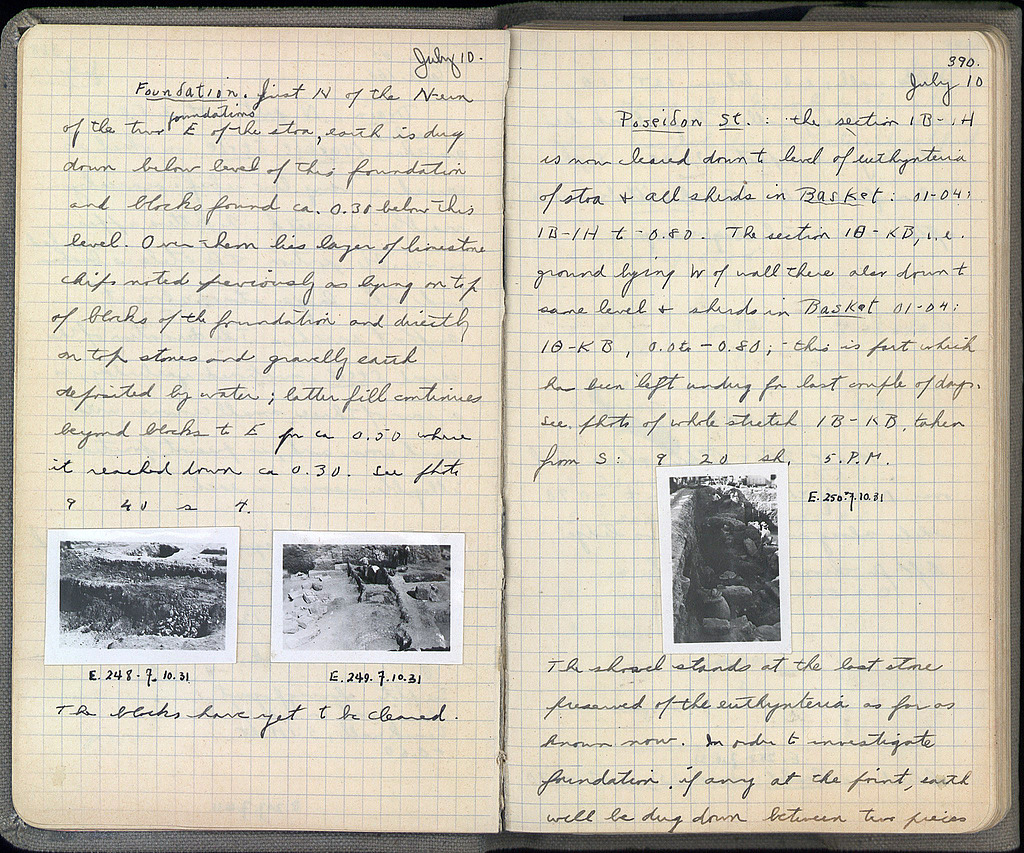 July 10.
Foundation. Just N of the N-ern
foundations
of the two E of the stoa, earth is dug
down below level of this foundation
and blocks found ca. 0.30 below this
level. Over them lies layer of limestone
chips noted previously as lying on top
of blocks of the foundation and directly
on top stones and gravelly earth
deposited by water; latter fill continues
beyond blocks to E for ca 0.50 where
it reached down ca 0.30. See photo
9 40 s 4.
E. 248. 7.10.31
E. 249. 7.10.31
The blocks have yet to be cleared.
390.
July 10
Poseidon St.: the section 1B-1H
is now cleared down to level of euthynteria
of stoa & all sherds in Basket: 01-04:
1B-1H to -0.80. The section 1Θ-KB, i.e.
ground lying W of wall there also down to
same level & sherds in Basket 01-04:
1Θ-KB, 0.0 to -0.80; this is part which
has been left undug for last couple of days.
See photo of whole stretch 1B-KB, taken
from S: 9 20 sh. 5. P.M.
E. 250. 7.10.31
The shovel stands at the last stone
preserved of the euthynteria as far as
known now. In order to investigate
foundation, if any at the point, earth
will be dug down between two pieces